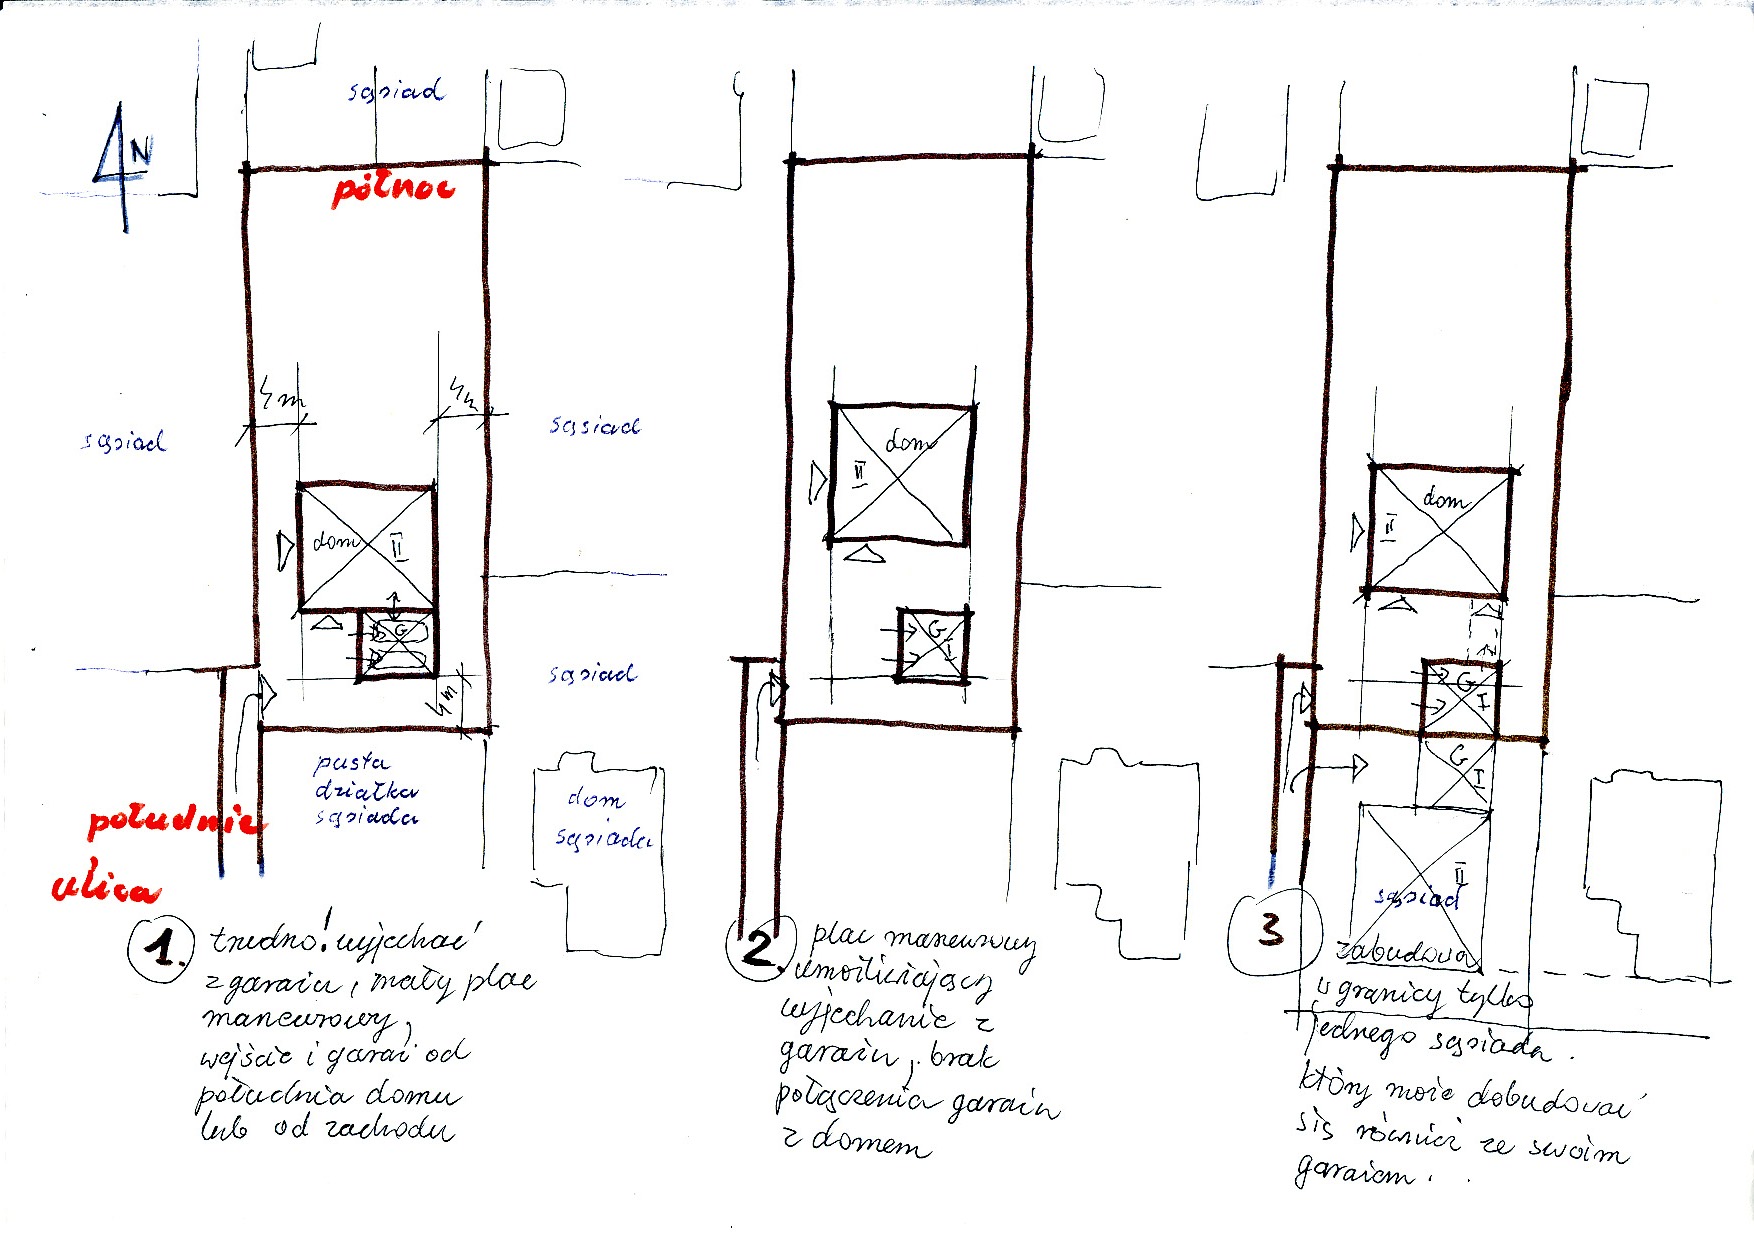 sąsiad
N
północ
4m
4m
sąsiad
sąsiad
dom
II
G
sąsiad
4m
pusta
działka
sąsiada
dom
sąsiada
południe
ulica
1.
trudno! wyjechać
z garażu, mały plac
manewrowy,
wejście i garaż od
południa domu
lub od zachodu
dom
II
G
I
2.
plac manewrowy
umożliwiający
wyjechanie z
garażu, brak
połączenia garażu
z domem
dom
II
G
I
G
I
II
sąsiad
3
zabudowa
w granicy tylko
jednego sąsiada.
który może dobudować
się również ze swoim
garażem.